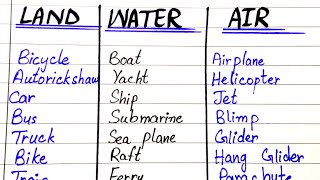 LAND WATER AIR
Bicycle Boat Airplane
Autorickshaw Yacht Helicopter
Car Ship Jet
Bus Submarine Blimp
Truck Sea plane Glider
Bike Raft Hang Glider
Train Ferry Parachute